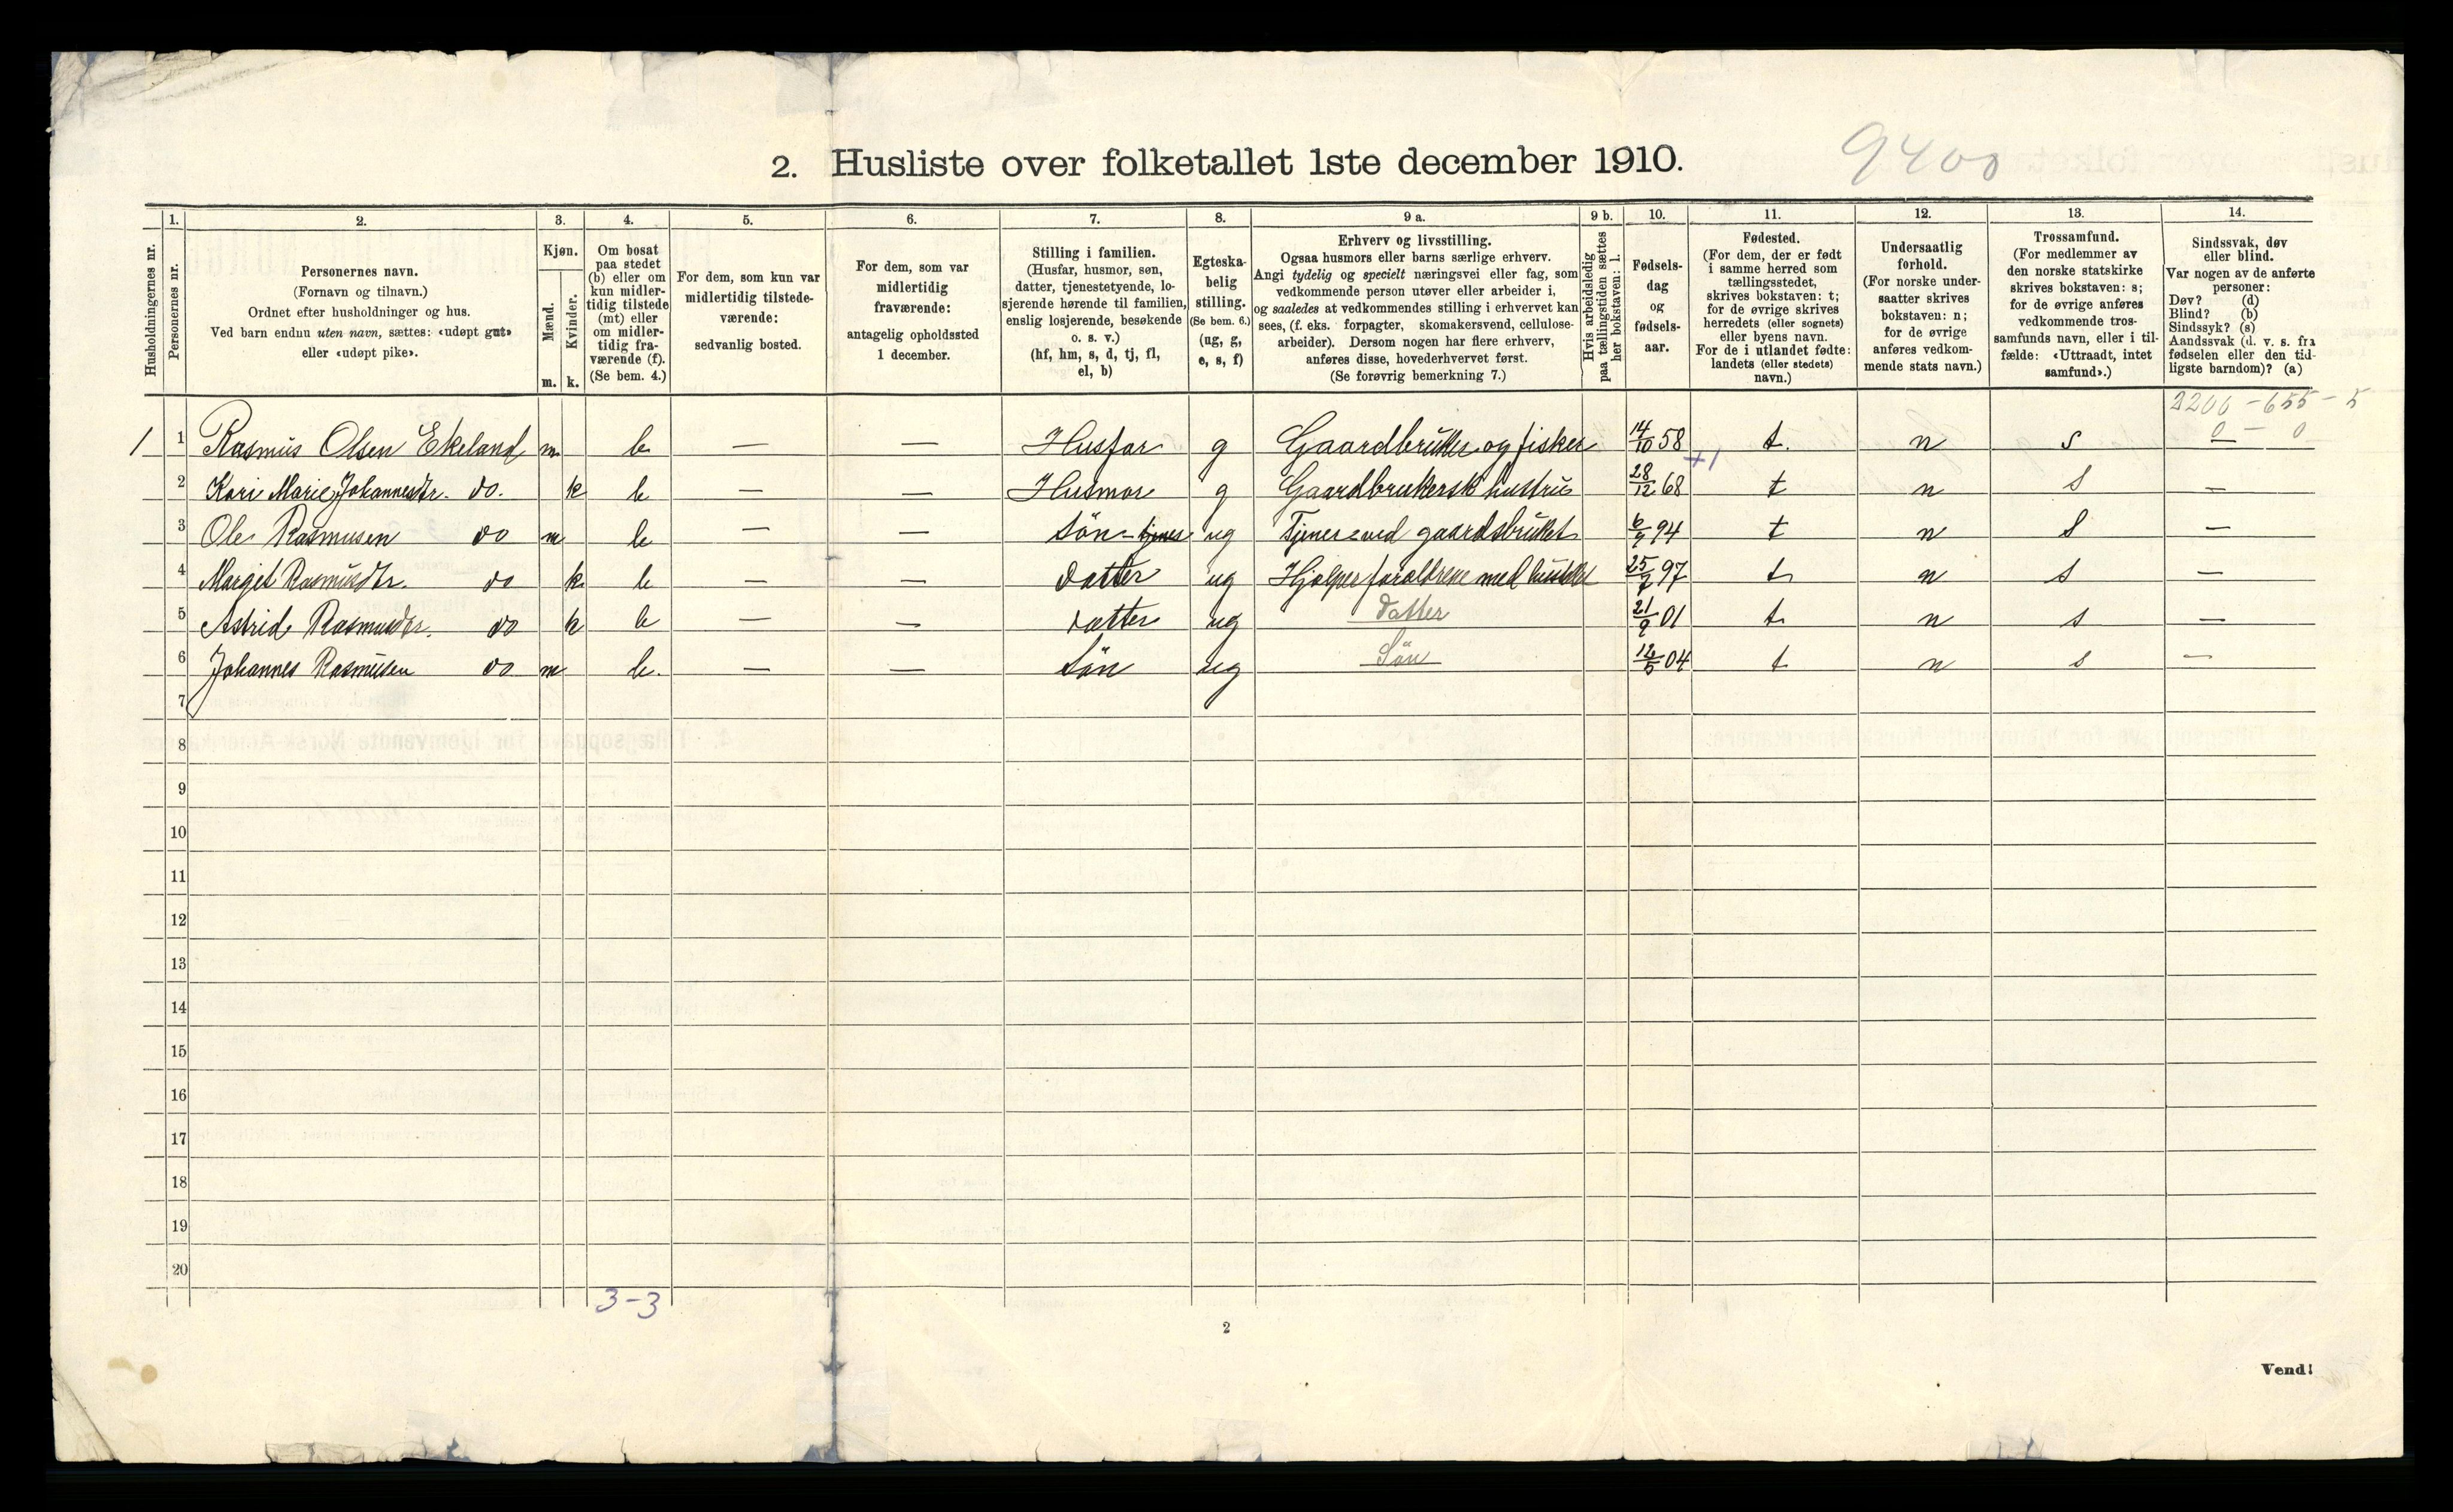 9400
2. Husliste over folketallet 1ste december 1910.
Husholdningernes nr.
1. Personernes nr.
2. Personernes navn.
(Fornavn og tilnavn.)
Ordnet efter husholdninger og hus.
Ved barn endnu uten navn, sættes: «udøpt gut»
eller «udøpt pike».
3. Kjøn.
Mænd. m.
Kvinder. k.
4. Om bosat
paa stedet
(b) eller om
kun midler-
tidig tilstede
(mt) eller
om midler-
tidig fra-
værende (f).
(Se bem. 4.)
5. For dem, som kun var
midlertidig tilstede-
værende:
sedvanlig bosted.
6. For dem, som var
midlertidig
fraværende:
antagelig opholdssted
1 december.
7. Stilling i familien.
(Husfar, husmor, søn,
datter, tjenestetyende, lo-
sjerende hørende til familien,
enslig losjerende, besøkende
o. s. v.)
(hf, hm, s, d, tj, fl,
el, b)
8. Egteska-
belig
stilling.
(Se bem. 6.)
(ug, g,
e, s, f)
9 a. Erhverv og livsstilling.
Ogsaa husmors eller barns særlige erhverv.
Angi tydelig og specielt næringsvei eller fag, som
vedkommende person utøver eller arbeider i,
og saaledes at vedkommendes stilling i erhvervet kan
sees, (f. eks. forpagter, skomakersvend, cellulose-
arbeider). Dersom nogen har flere erhverv,
anføres disse, hovederhvervet først.
(Se forøvrig bemerkning 7.)
9 b. Hvis arbeidsledig
paa tællingstiden sættes
her bokstaven: l.
10. Fødsels-
dag
og
fødsels-
aar.
11. Fødested.
(For dem, der er født
i samme herred som
tællingsstedet,
skrives bokstaven: t;
for de øvrige skrives
herredets (eller sognets)
eller byens navn.
For de i utlandet fødte:
landets (eller stedets)
navn.)
12. Undersaatlig
forhold.
(For norske under-
saatter skrives
bokstaven: n;
for de øvrige
anføres vedkom-
mende stats navn.)
13. Trossamfund.
(For medlemmer av
den norske statskirke
skrives bokstaven: s;
for de øvrige anføres
vedkommende tros-
samfunds navn, eller i til-
fælde: «Uttraadt, intet
samfund».)
14. Sindssvak, døv
eller blind.
Var nogen av de anførte
personer:
Døv? (d)
Blind? (b)
Sindssyk? (s)
Aandssvak (d. v. s. fra
fødselen eller den tid-
ligste barndom)? (a)
2200 - 655 - 5
0 - 0
1 1 Rasmus Olsen Ekeland m b — — Husfar g Gaardbruker og fisker 14/10 58 t. n s —
+1
2 Kari Marie Johannesdtr. do. k b — — Husmor g Gaardbrukersk hustru 28/12 68 t n s —
3 Ole Rasmusen do m b — — Sön - tjener ug Tjener ved gaardsbruket 94 t n s —
4 Margit Rasmusdtr. do k b — — datter ug Hjelper forældrene med husstell 25/7 97 t n s —
5 Astrid Rasmusdtr. do k b — — datter ug datter 21/9 01 t n s —
6 Johannes Rasmusen do m b. — — Sön ug Sön 12/5 04 t n s —
7
8
9
10
11
12
13
14
15
16
17
18
19
20
3-3
2
Vend!